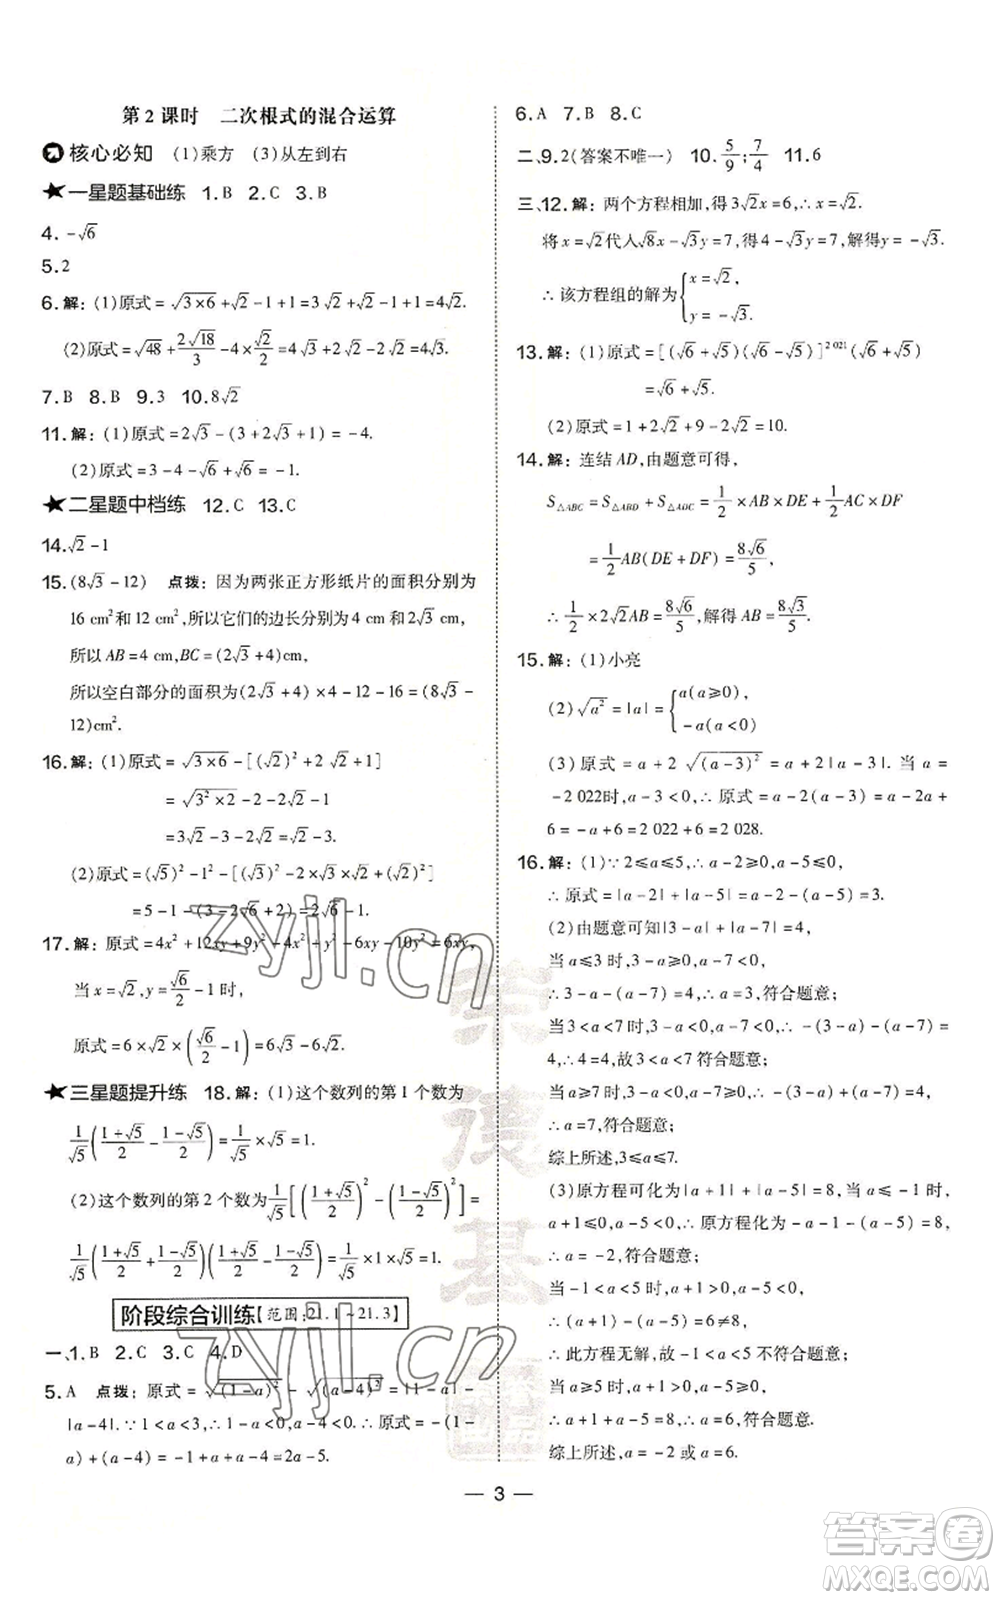 第2课时 二次根式的混合运算
核心必知 (1)乘方 (3)从左到右
一星题基础练 1. B 2. C 3. B
4. -√6
5. 2
6. 解: (1)原式 = √(3×6) + √2 - 1 + 1 = 3√2 + √2 - 1 + 1 = 4√2.
(2)原式 = √48 + 2√18/3 - 4 × √2/2 = 4√3 + 2√2 - 2√2 = 4√3.
7. B 8. B 9. 3 10. 8√2
11. 解: (1)原式 = 2√3 - (3 + 2√3 + 1) = -4.
(2)原式 = 3 - 4 - √6 + √6 = -1.
二星题中档练 12. C 13. C
14. √2 - 1
15. (8√3 - 12) 点拨: 因为两张正方形纸片的面积分别为
16 cm²和 12 cm²,所以它们的边长分别为4 cm和2√3 cm,
所以 AB = 4 cm, BC = (2√3 + 4)cm,
所以空白部分的面积为(2√3 + 4) × 4 - 12 - 16 = (8√3 -
12)cm².
16. 解: (1)原式 = √(3×6) - [(√2)² + 2√2 + 1]
= √(3²×2) - 2 - 2√2 - 1
= 3√2 - 2 - 2√2 - 1 = √2 - 3.
(2)原式 = (√5)² - 1² - [(√3)² - 2√6 + (√2)²]
= 5 - 1 - (3 - 2√6 + 2) = 2√6 - 1.
17. 解: 原式 = 4x² + 12xy + 9y² - 4x² + y² - 6xy - 10y² = 6xy,
当 x = √2, y = √6/2 - 1 时,
原式 = 6 × √2 × (√6/2 - 1) = 6√3 - 6√2.
三星题提升练 18. 解: (1)这个数列的第1个数为
1/√5 ((1+√5)/2 - (1-√5)/2) = 1/√5 × √5 = 1.
(2)这个数列的第2个数为 1/√5 [((1+√5)/2)² - ((1-√5)/2)²] =
1/√5 ((1+√5)/2 + (1-√5)/2)((1+√5)/2 - (1-√5)/2) = 1/√5 × 1 × √5 = 1.
阶段综合训练【范围:21.1~21.3】
一、1. B 2. C 3. C 4. D
5. A 点拨: 原式 = √(1-a)² - √(a-4)² = |1-a| -
|a-4|. ∵1<a<3, ∴1-a<0, a-4<0, ∴原式 = -(1-
a) + (a-4) = -1 + a + a - 4 = 2a - 5.
6. A 7. B 8. C
二、9. 2(答案不唯一) 10. 5/9; 7/4 11. 6
三、12. 解: 两个方程相加,得3√2x = 6, ∴x = √2.
将x = √2代入√8x - √3y = 7,得4 - √3y = 7,解得y = -√3.
∴该方程组的解为{x = √2,
y = -√3.
13. 解: (1)原式 = [(√6 + √5)(√6 - √5)]^2 021(√6 + √5)
= √6 + √5.
(2)原式 = 1 + 2√2 + 9 - 2√2 = 10.
14. 解: 连结AD,由题意可得,
S△ABC = S△ABD + S△ADC = 1/2 × AB × DE + 1/2 AC × DF
= 1/2 AB(DE + DF) = 8√6/5,
∴1/2 × 2√2AB = 8√6/5,解得AB = 8√3/5.
15. 解: (1)小亮
(2)√a² = |a| = {a(a≥0),
-a(a<0)
(3)原式 = a + 2√(a-3)² = a + 2|a-3|. 当 a =
-2 022时, a-3<0, ∴原式 = a - 2(a-3) = a - 2a +
6 = -a + 6 = 2 022 + 6 = 2 028.
16. 解: (1)∵2≤a≤5, ∴a-2≥0, a-5≤0,
∴原式 = |a-2| + |a-5| = a - 2 - (a-5) = 3.
(2)由题意可知|3-a| + |a-7| = 4,
当a≤3时,3-a≥0, a-7<0,
∴3-a-(a-7) = 4, ∴a = 3,符合题意;
当3<a<7时,3-a<0, a-7<0, ∴-(3-a)-(a-7) =
4, ∴4 = 4,故3<a<7符合题意;
当a≥7时,3-a<0, a-7≥0, ∴-(3-a)+(a-7) = 4,
∴a = 7,符合题意;
综上所述,3≤a≤7.
(3)原方程可化为|a+1| + |a-5| = 8,当a≤-1时,
a+1≤0, a-5<0, ∴原方程化为-a-1-(a-5) = 8,
∴a = -2,符合题意;
当-1<a<5时, a+1>0, a-5<0,
∴(a+1)-(a-5) = 6≠8,
∴此方程无解,故-1<a<5不符合题意;
当a≥5时, a+1>0, a-5≥0,
∴a+1+a-5 = 8, ∴a = 6,符合题意;
综上所述, a = -2或a = 6.
zyjl.cn
zyjl.cn
荣德基
— 3 —
答案圈
MXQE.COM